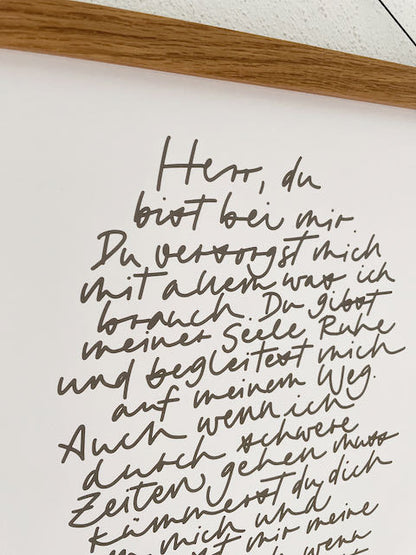 Herr, du
bist bei mir.
Du versorgst mich
mit allem was ich
brauch. Du gibst
meiner Seele Ruhe
und begleitest mich
auf meinem Weg.
Auch wenn ich
durch schwere
Zeiten gehen muss
kümmerst du dich
um mich und
mir meine
wenn